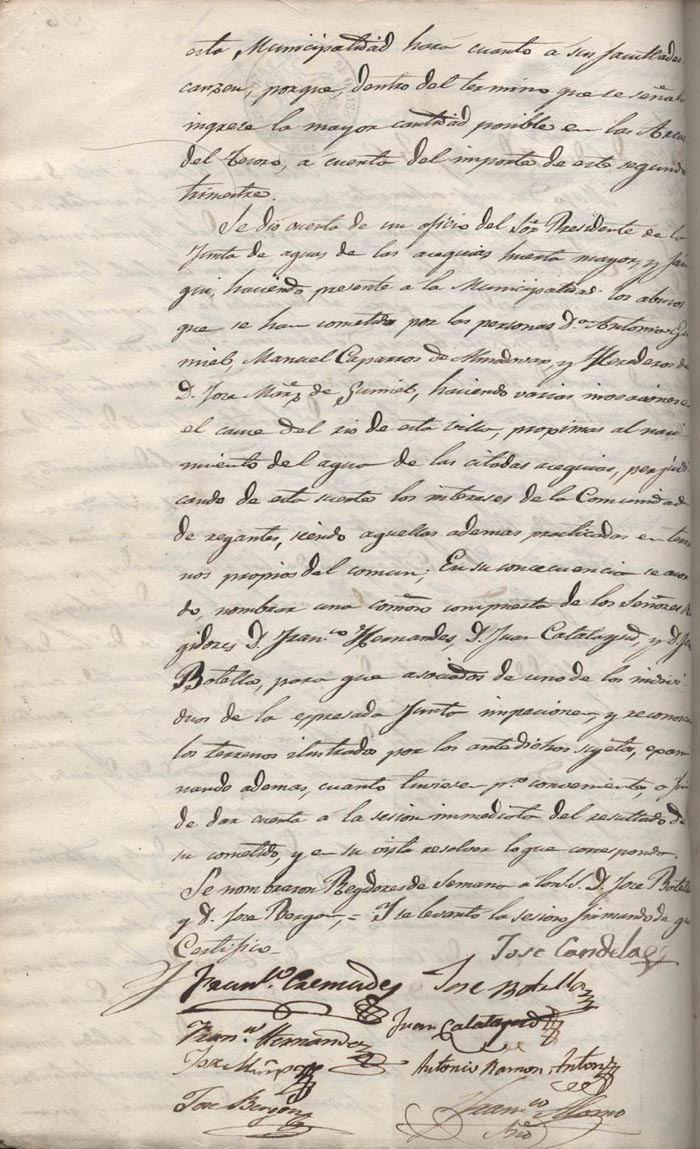 esta Municipalidad hará cuanto á sus facultades
canzen, porque, dentro del termino que se señala
ingrese la mayor cantidad posible en las Arcas
del Tesoro, á cuenta del importe de este segundo
trimestre.
Se dió cuenta de un oficio del Sor. Presidente de la
Junta de aguas de las acequias huerta mayor, y
haciendo presente a la Municipalidad los abusos
que se han cometido por las personas Dn. Antonio
Manuel Caparros de Almodovar, y Herederos de
D. Jose Mñz de Gumiel, haciendo varias inovaciones
el cauce del rio de esta villa, proximas al naci
miento del agua de las citadas acequias, perjudi
cando de esta suerte los intereses de la Comunidad
de regantes, siendo aquellas ademas practicadas en terre
nos propios del comun; En su concecuencia se acor
do, nombrar una comon. compuesta de los Señores Re
gidores D. Franco. Hernandes, D. Juan Catalayud, y D. Je
Botella, para que asociados de uno de los indivi
duos de la espresada Junta inspecionen, y reconoscan
los terrenos ilustrados por los antedichos sujetos, exami
nando ademas, cuanto tuviesen pr. conveniente, a fin
de dar cuenta á la sesion inmediata del resultado de
su cometido, y en su vista resolver lo que corresponda.
Se nombraron Regidores de Semana a los S.S. D. Jose Botella
y D. Jose = Y se levantó la sesion firmando de que
Certifico.
Jose Candela
Franco. Cremades Jose Botella
Franco. Hernandez Juan Catalayud
Jose Antonio Ramon Anton
Jose Franco. Alonso
Srio